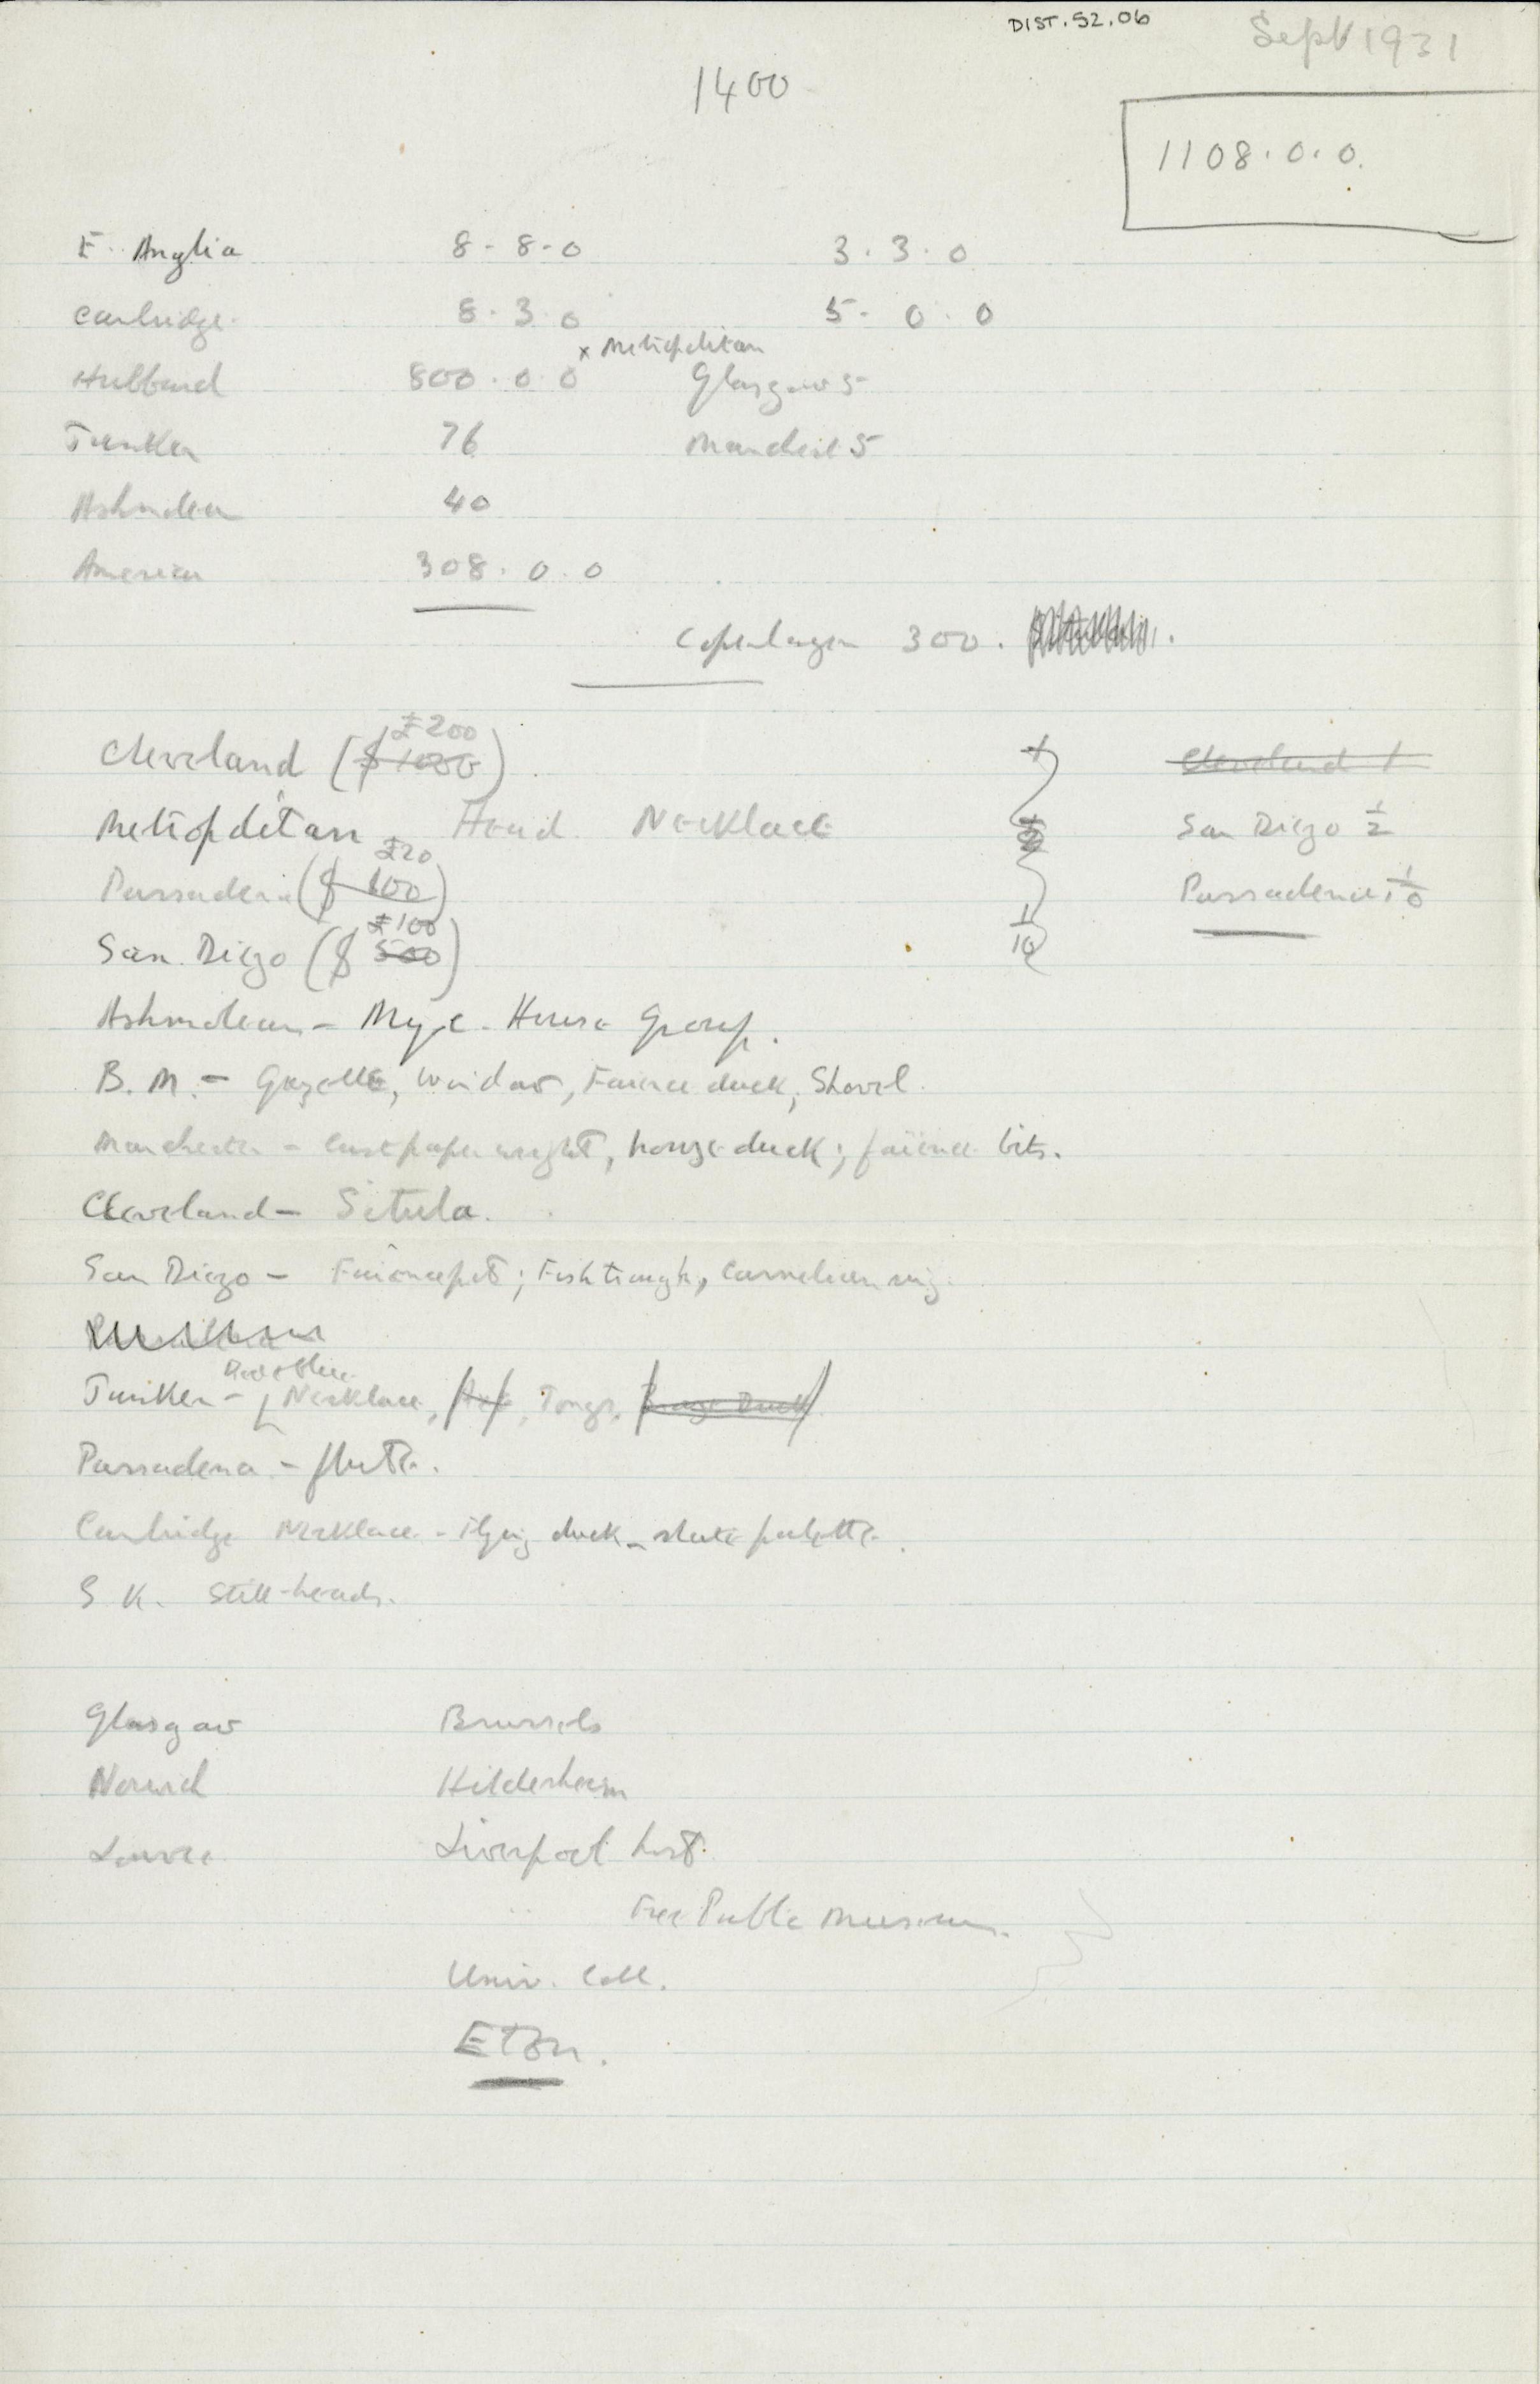 DIST.52.06
Sept 1931
1400
1108.0.0.
E. Anglia 8-8-0 3.3.0
Cambridge. 8.3.0 5.0.0
x Metropolitan
Hubbard 800.0.0 Glasgow 5
Junker 76 Manchest 5
Ashmolean 40
American 308.0.0
Copenhagen 300.
£200
Cleveland ($1000) 1 Cleveland 1
Metropolitan - Head Necklace San Diego 1/2
£20
Passadena ($100) Passadena 1/10
£100
San Diego ($500) 1/10
Ashmolean - Myc. House Group.
B.M. - Gazelle, Window, Faience duck, Shovel.
Manchester - cast paper weight, bronze duck; faience bits.
Cleveland - Situla.
San Diego - Faience pot; Fish trough, Carnelian ring.
Red & blue
Junker - Necklace, Axe, Tongs, Bronze Duck
Passadena - flute.
Cambridge Necklace - flying duck - slate palette.
S K. Still-heads.
Glasgow Brussels
Norwich Hildesheim
Louvre Liverpool Inst.
Free Public Museum.
Univ. Coll.
Eton.